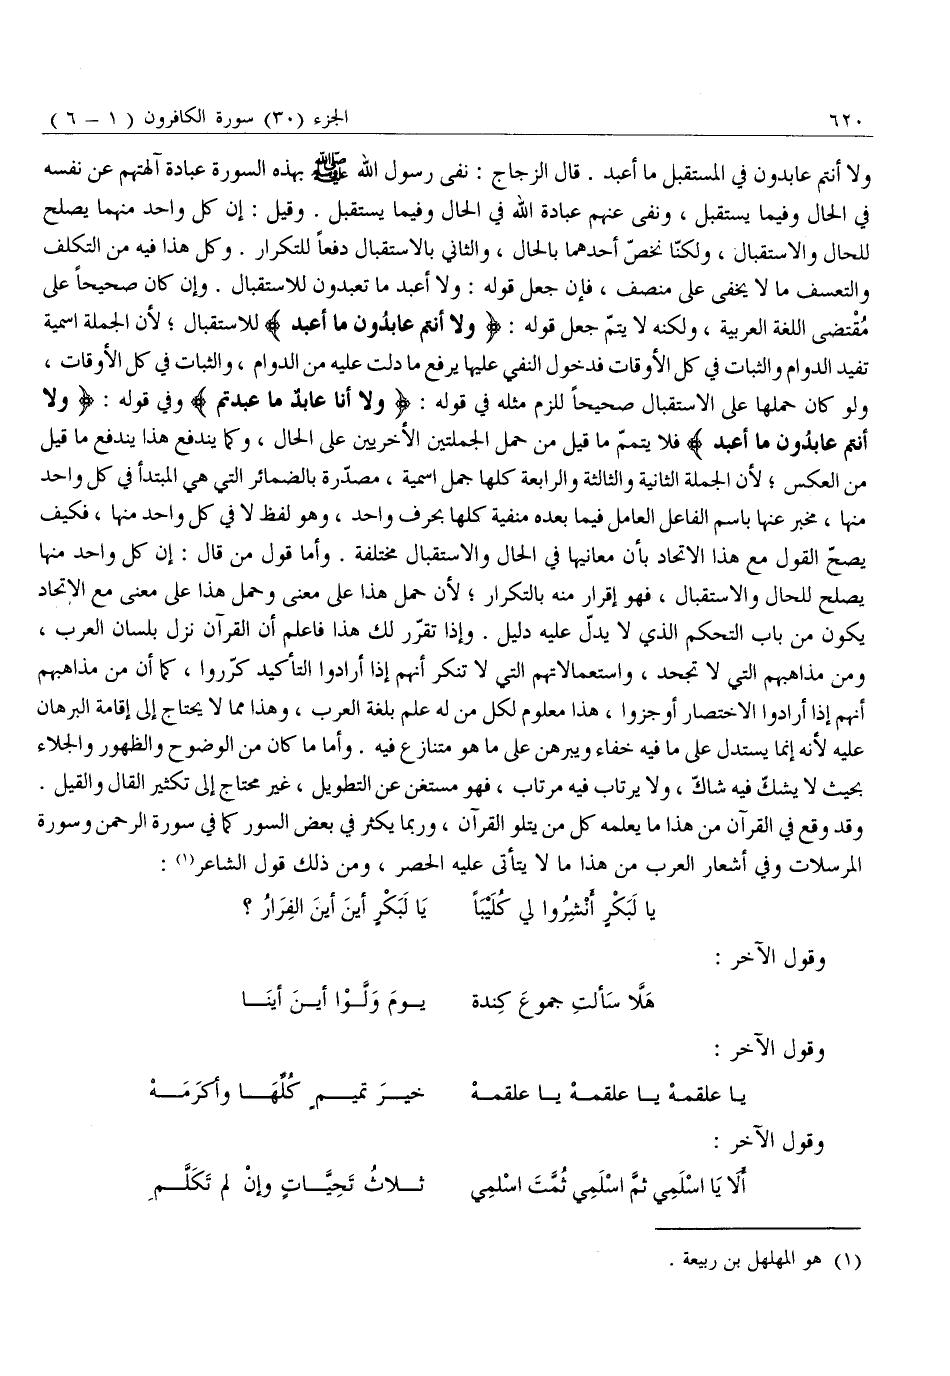 ٦٢٠ الجزء (٣٠) سورة الكافرون ( ١ – ٦ )
ولا أنتم عابدون في المستقبل ما أعبد . قال الزجاج : نفى رسول الله ﷺ بهذه السورة عبادة آلهتهم عن نفسه
في الحال وفيما يستقبل ، ونفى عنهم عبادة الله في الحال وفيما يستقبل . وقيل : إن كل واحد منهما يصلح
للحال والاستقبال ، ولكنّا نخصّ أحدهما بالحال ، والثاني بالاستقبال دفعاً للتكرار . وكل هذا فيه من التكلف
والتعسف ما لا يخفى على منصف ، فإن جعل قوله : ولا أعبد ما تعبدون للاستقبال . وإن كان صحيحاً على
مُقْتضى اللغة العربية ، ولكنه لا يتمّ جعل قوله : ﴿ ولا أنتم عابدُون ما أعبد ﴾ للاستقبال ؛ لأن الجملة اسمية
تفيد الدوام والثبات في كل الأوقات فدخول النفي عليها يرفع ما دلت عليه من الدوام ، والثبات في كل الأوقات ،
ولو كان حملها على الاستقبال صحيحاً للزم مثله في قوله : ﴿ ولا أنا عابدٌ ما عبدتم ﴾ وفي قوله : ﴿ ولا
أنتم عابدُون ما أعبد ﴾ فلا يتممّ ما قيل من حمل الجملتين الأخريين على الحال ، وكما يندفع هذا يندفع ما قيل
من العكس ؛ لأن الجملة الثانية والثالثة والرابعة كلها جمل اسمية ، مصدّرة بالضمائر التي هي المبتدأ في كل واحد
منها ، مخبر عنها باسم الفاعل العامل فيما بعده منفية كلها بحرف واحد ، وهو لفظ لا في كل واحد منها ، فكيف
يصحّ القول مع هذا الاتحاد بأن معانيها في الحال والاستقبال مختلفة . وأما قول من قال : إن كل واحد منها
يصلح للحال والاستقبال ، فهو إقرار منه بالتكرار ؛ لأن حمل هذا على معنى وحمل هذا على معنى مع الاتحاد
يكون من باب التحكم الذي لا يدلّ عليه دليل . وإذا تقرّر لك هذا فاعلم أن القرآن نزل بلسان العرب ،
ومن مذاهبهم التي لا تجحد ، واستعمالاتهم التي لا تنكر أنهم إذا أرادوا التأكيد كرّروا ، كما أن من مذاهبهم
أنهم إذا أرادوا الاختصار أوجزوا ، هذا معلوم لكل من له علم بلغة العرب ، وهذا مما لا يحتاج إلى إقامة البرهان
عليه لأنه إنما يستدل على ما فيه خفاء ويبرهن على ما هو متنازع فيه . وأما ما كان من الوضوح والظهور والجلاء
بحيث لا يشكّ فيه شاكّ ، ولا يرتاب فيه مرتاب ، فهو مستغن عن التطويل ، غير محتاج إلى تكثير القال والقيل .
وقد وقع في القرآن من هذا ما يعلمه كل من يتلو القرآن ، وربما يكثر في بعض السور كما في سورة الرحمن وسورة
المرسلات وفي أشعار العرب من هذا ما لا يتأتى عليه الحصر ، ومن ذلك قول الشاعر(١) :
يا لَبَكْرٍ أَنْشِرُوا لي كُلَيْبَاً يَا لَبَكْرٍ أينَ أينَ الفِرَارُ ؟
وقول الآخر :
هَلَّا سَألتِ جموعَ كِندة يـومَ وَلَّـوْا أيـنَ أينَـا
وقول الآخر :
يـا علقمـةْ يـا علقمـةْ يـا علقمـةْ خيـرَ تميـمٍ كُلِّهَـا وأكرَمَـهْ
وقول الآخر :
أَلَا يَا اسْلَمِي ثمَّ اسْلَمِي ثُمَّتَ اسْلمِي ثـلاثُ تَحِيَّـاتٍ وإنْ لم تَكَلَّـمِ
(١) هو المهلهل بن ربيعة .